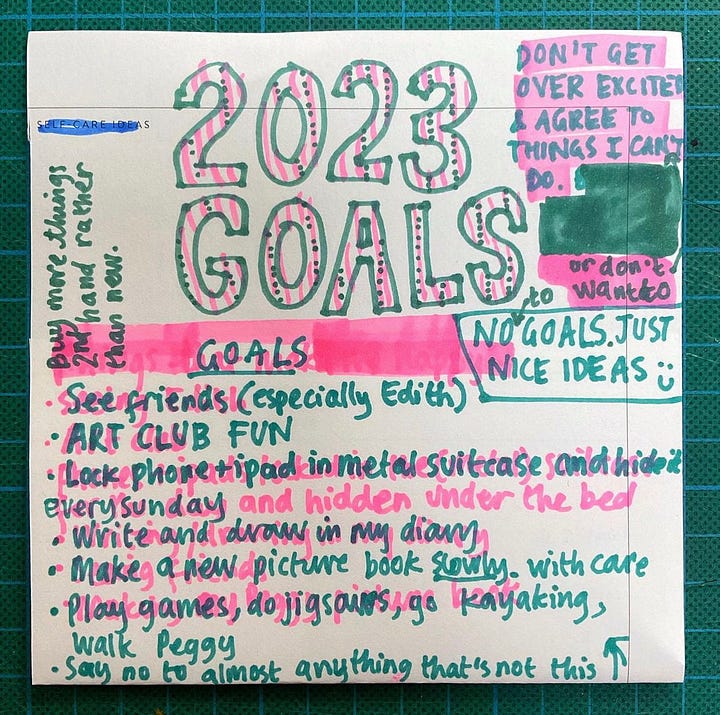 2023
GOALS
DON'T GET
OVER EXCITED
& AGREE TO
THINGS I CAN'T
DO.
or don't
want to
to
SELF-CARE IDEAS
Buy more things
2nd hand rather
than new.
NO GOALS. JUST
NICE IDEAS
GOALS
· See friends (especially Edith)
· ART CLUB FUN
· Lock phone + ipad in metal suitcase and hide it
every sunday and hidden under the bed
· Write and draw in my diary
· Make a new picture book slowly. with care
· Play games, do jigsaws, go kayaking,
walk Peggy
· Say no to almost anything that's not this